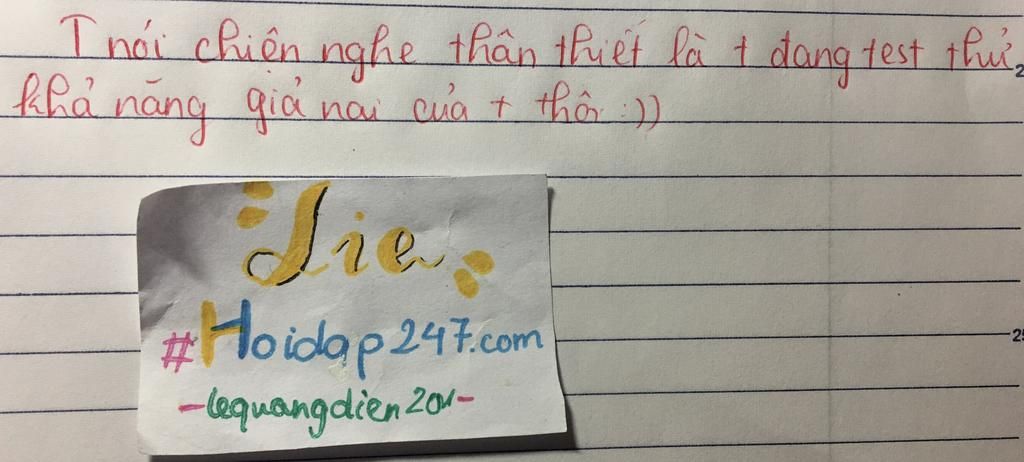 T nói chiện nghe thân thiết là t đang test thử
khả năng giả nai của t thôi :))
Jie
#Hoidap247.com
-lequangdien204-